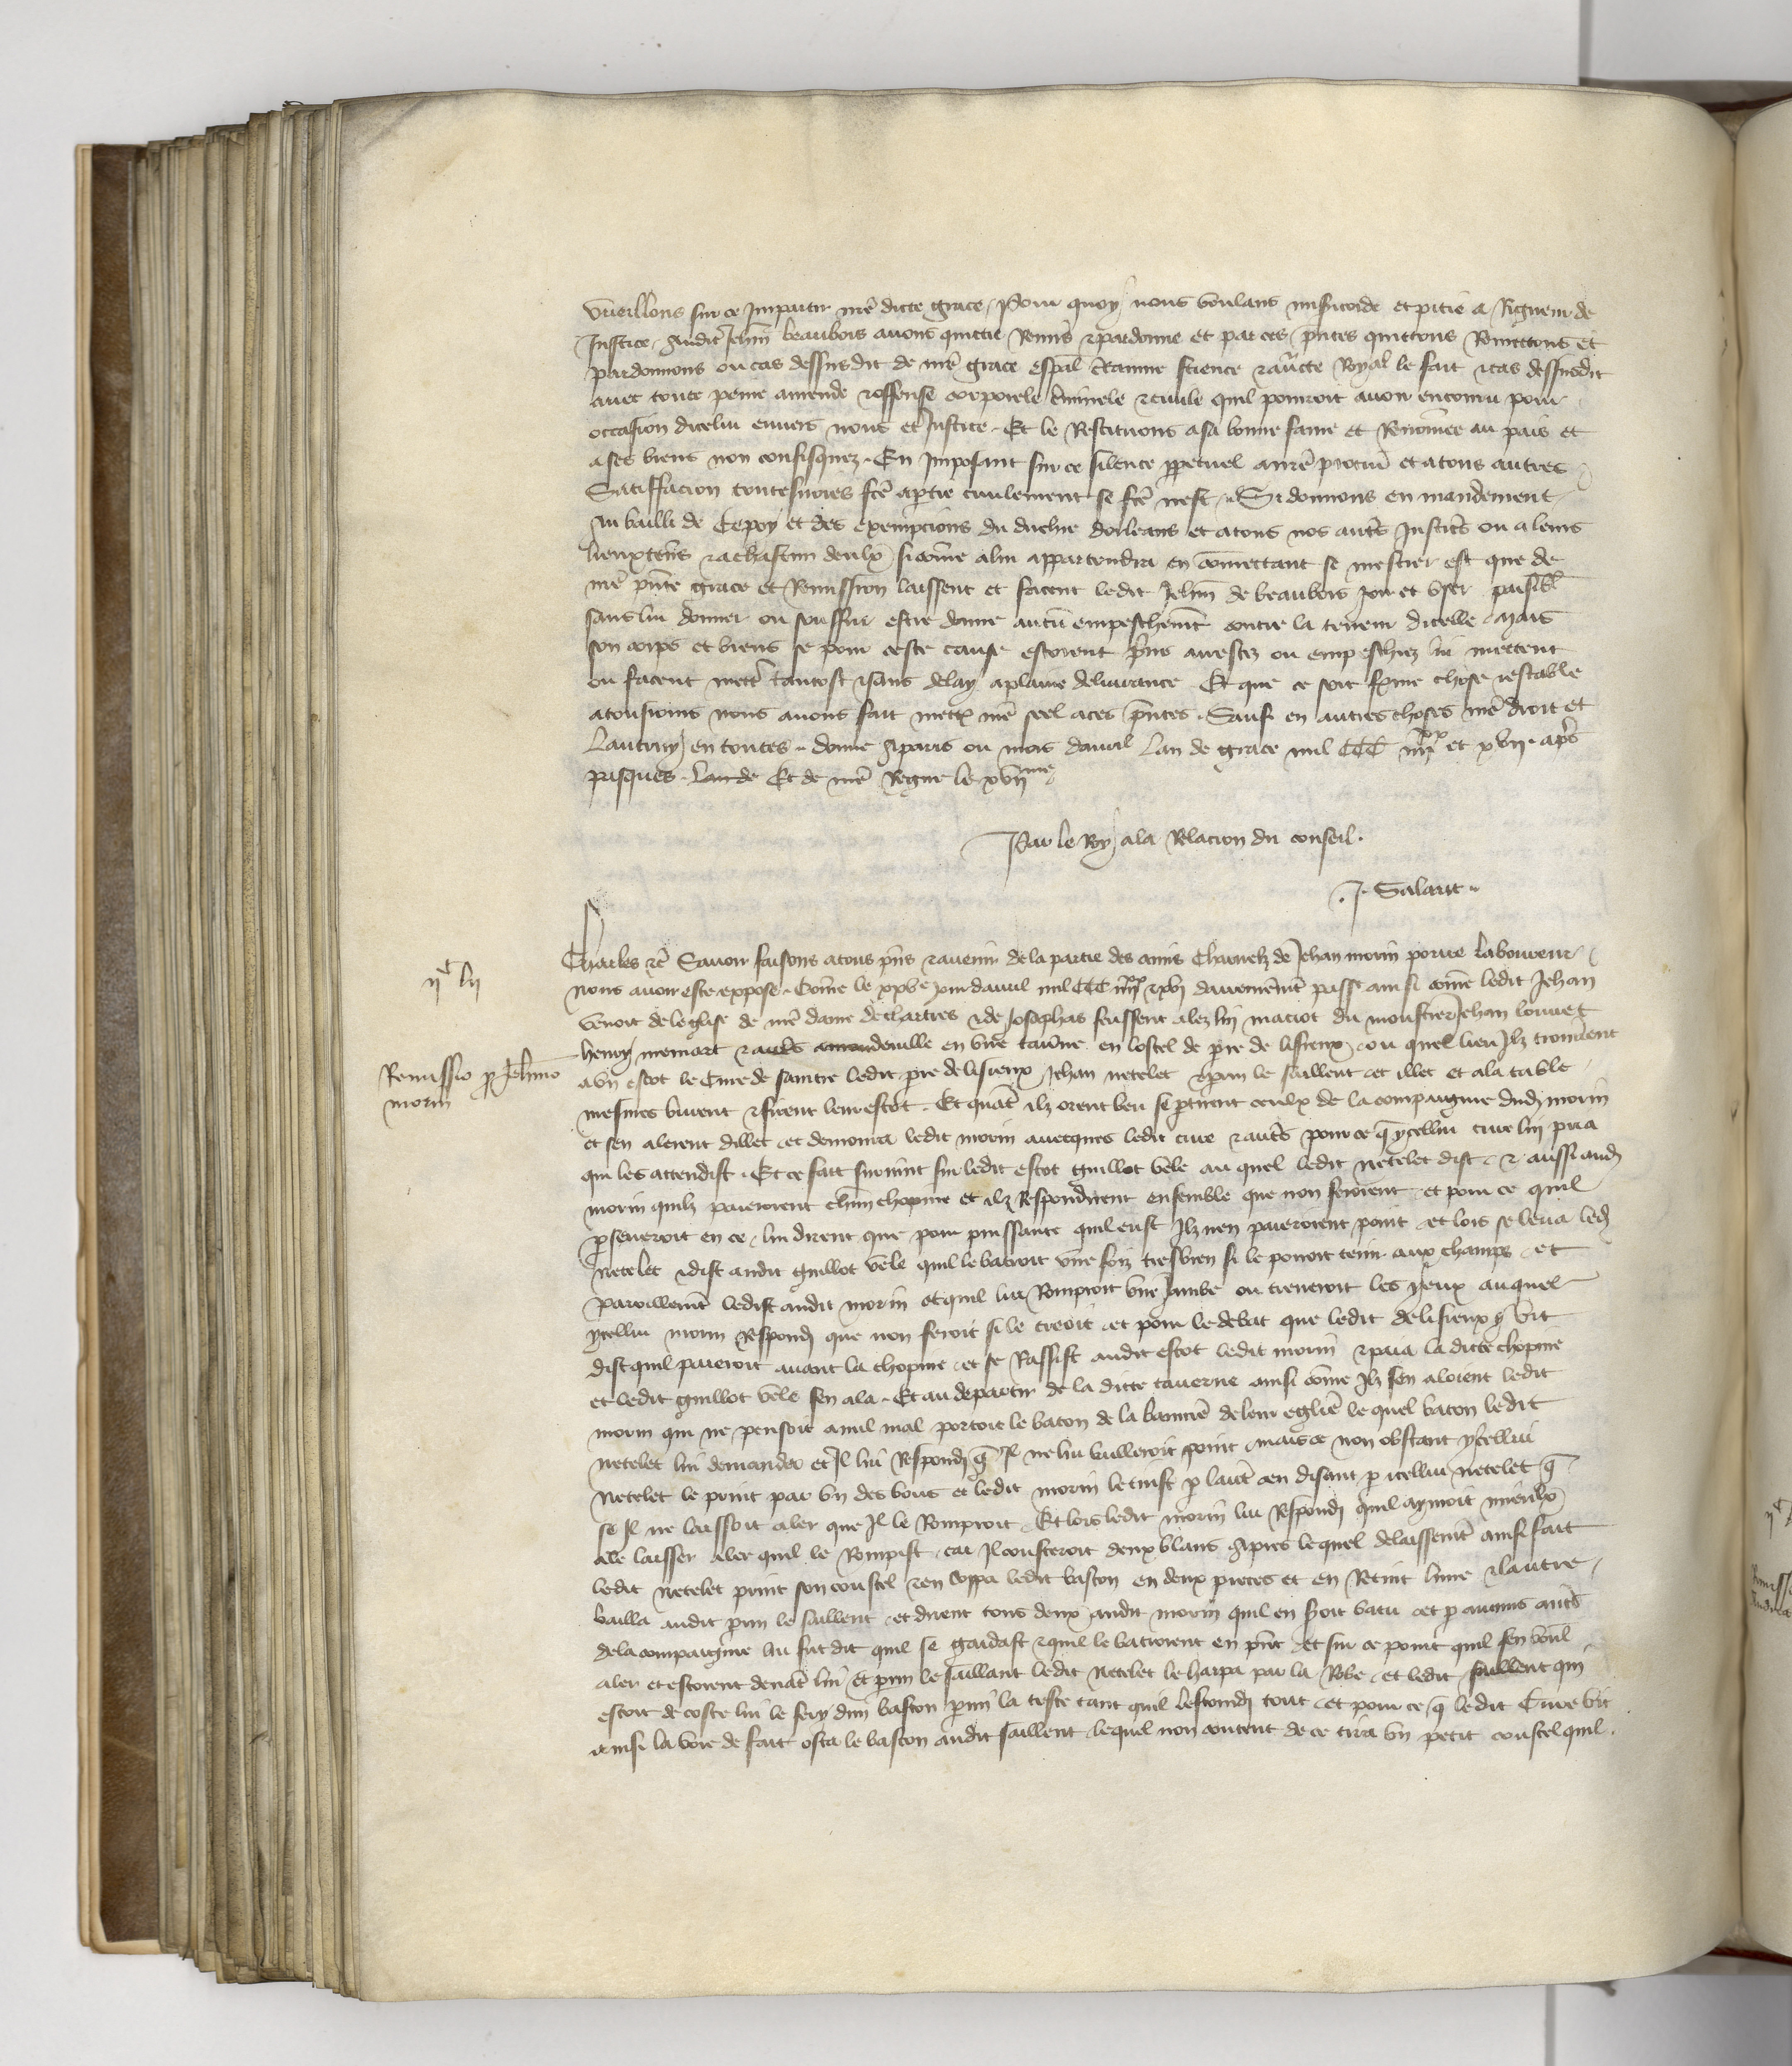 vueillons sur ce impartir nre dicte grace Pour quoy nous voulans misericorde et pitie a Rigueur de
Justice Audit Jehan beaubois avons quictie Remis et pardonne et par ces pntes quictons Remettons et
pardonnons ou cas dessusdit de nre grace espal et auctte Royal le fait et cas dessusdit
avec toute peine amende et offense corporele criminele et civile quil pourroit avoir encouru pour
occasion dicelui envers nous et Justice Et le Restituons a sa bonne fame et Renomee au pais et
a ses biens non confisquez En Imposant sur ce silence ppetuel a nre procur et a tous autres
Satisfacion toutesvoies fce a ptie civilement se fce nest Si donnons en mandement
Au bailli de Cepoy et des exempcions du duchie dorleans et a tous nos autres Justiciers ou a leurs
lieuxtens et a chascun deulx si come a lui appartendra en comectant se mestier est que de
nre pnte grace et Remission laissent et facent ledit Jehan de beaubois Joir et vser paisibl
sans lui donner ou souffrir estre donne aucu empeschemt contre la teneur dicelle Mais
son corps et biens se pour ceste cause estoient prins arrestez ou empeschiez lui mettent
ou facent mettr tantost et sans delay a plaine delivrance Et que ce soit ferme chose et estable
a tousjours nous avons fait mettr nre seel a ces pntes Sauf en autres choses nre droit et
lautruy en toutes donne A paris ou mois davril Lan de grace mil CCC iiijxx et xvij aprs
pasques Lan de Et de nre Regne le xvijme
Par le Roy a la Relacion du conseil
J. Salaut
ijc lij
Remissio p Johanno
morin
Charles etc Savoir faisons a tous pns et avenir de la partie des amis charnelz de Jehan morin povre laboureur
nous avoir este expose Come le xxve Jour davril mil CCC iiijxx et xvij darrenemt passe ainsi come ledit Jehan
venoit de leglise de nre dame de chartres et de Josaphas feussent alez lui maciot du moustier Jehan louuet
henry memart et autrs en vne tavne en lostel de pre de lisieux ou quel lieu Ilz trouverent
a vn escot le Cure de saintre ledit pre de lisieux Jehan netelet perrin le saillent et illec et a la table
mesmes burent et firent leur escot Et quat ilz orent beu se ptirent ceulx de la compaignie dudit morin
et sen alerent dillec et demoura ledit morin avecques ledit cure et autrs pour ce q ycellui cure lui pria
qui les attendist Et ce fait survint sur ledit escot guillot vele au quel ledit netelet dist et aussi aud
morin quilz paieroient chun chopine et ilz Respondirent ensemble que non feroient et pour ce quil
pseveroit en ce lui dirent que pour puissance quil eust Ilz nen paieroient point et lors se leva led
netelet et dist audit guillot vele quil le batroit vne foiz tresbien si le povoit tenir aux champs et
pareillemt le dist audit morin et quil lui Romproit vne Jambe ou creveroit les yeux auquel
ycellui morin Respond que non feroit si le creoit et pour le debat que ledit de lisieux y vit
dist quil paieroit avant la chopine et se Rassist audit escot ledit morin et paia la dicte chopine
et ledit guillot vele sen ala Et au departir de la dicte taverne ainsi come Ilz sen aloient ledit
morin qui ne pensoit a nul mal portoit le baton de la baniere de leur eglise le quel baton ledit
netelet lui demander et Il lui Respond q Il ne lui bailleroit point mais ce non obstant ycellui
Netelet le print par vn des bous et ledit morin le tinst p lautr en disant p icellui netelet q
se Il ne laissoit aler que Il le Romproit Et lors ledit morin lui Respond quil aymoit mieulx
a le laisser aler quil le Rompist car Il cousteroit deux blans Apres lequel delaissemt ainsi fait
ledit netelet print son coustel et en coppa ledit baston en deux pieces et en Retint lune et lautre
bailla audit prin le saillent et dirent tous deux audit morin quil en seroit batu et p aucuns autrs
de la compaignie lui fut dit quil se gardast et quil le batroient en pnt et sur ce point quil sen voul
aler et estoient devat lui et prin le saillant ledit netelet le harpa par la Robe et ledit saillent qui
estoit de coste lui le fery dun baston parmi la teste tant quil lestourdi tout et pour ce q ledit Cure vit
ainsi la voie de fait osta le baston audit saillent lequel non content de ce tira vn petit coustel quil